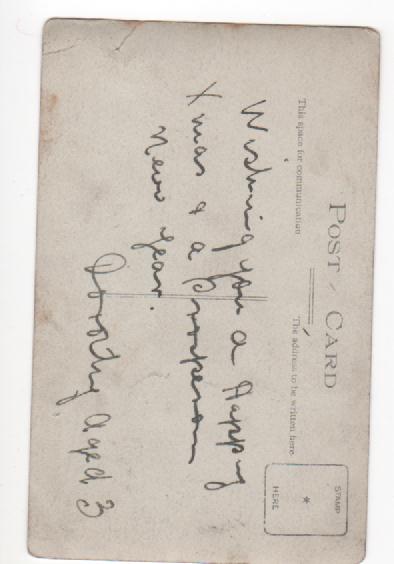 POST CARD
This space for communication
The address to be written here.
STAMP
HERE
Wishing you a Happy
Xmas & a Prosperous
New Year.
Dorothy Aged 3